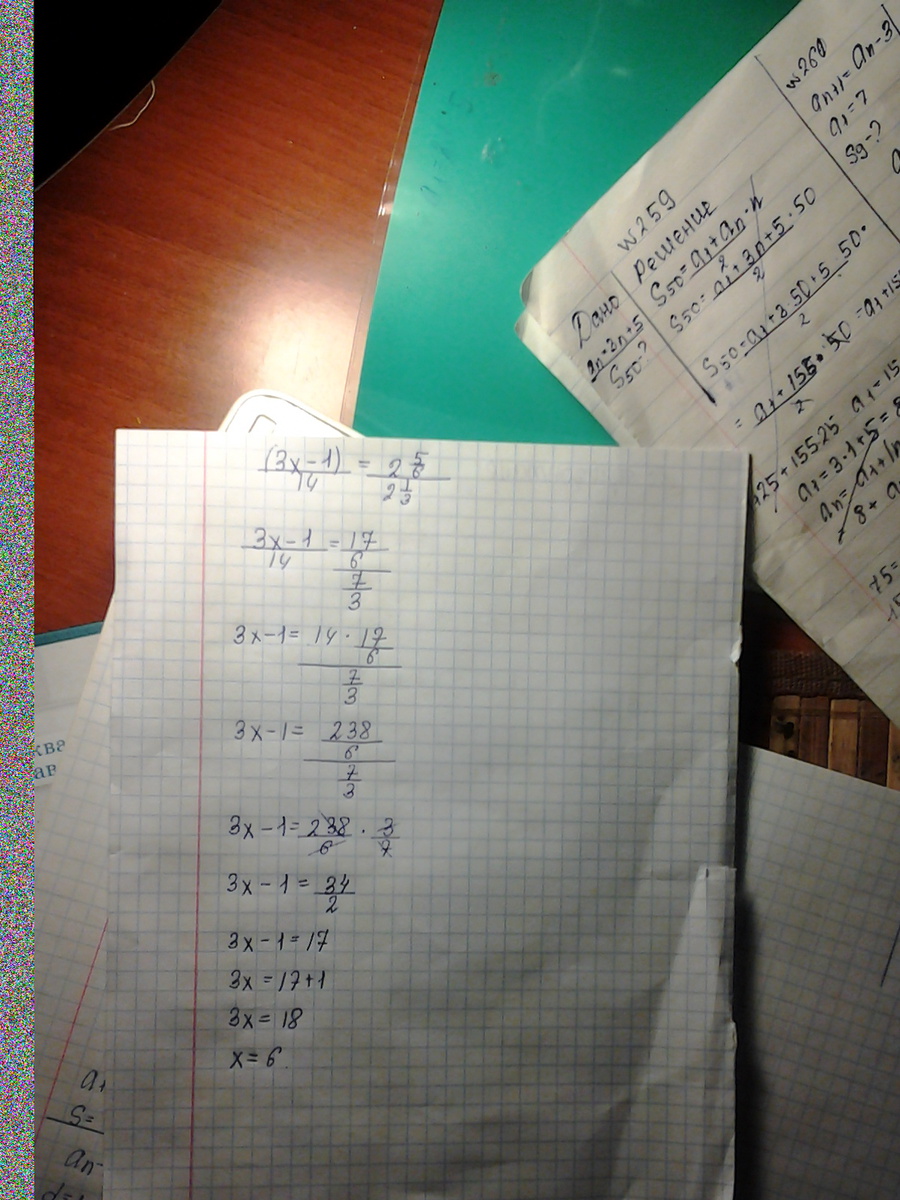 (3x-1)/14 = 2 5/6 / 2 1/3
3x-1/14 = 17/6 / 7/3
3x-1= 14 · 17/6 / 7/3
3x-1= 238/6 / 7/3
3x-1= 238/6 · 3/7
3x-1 = 34/2
3x-1=17
3x=17+1
3x=18
x=6
№259
Дано
Решение
an=3n+5
S50?
S50= a1+an·n/2
S50= a1+3n+5·50/2
S50= a1+3·50+5·50·/2
= a1+155·50/2 = a1+15
·25+155·25 a1=15
a1=3·1+5=8
an= a1+(n
8+ a
75=
№260
an+1= an-3
a1=7
S9-?
ква
ав
a1
S=
an-
d=